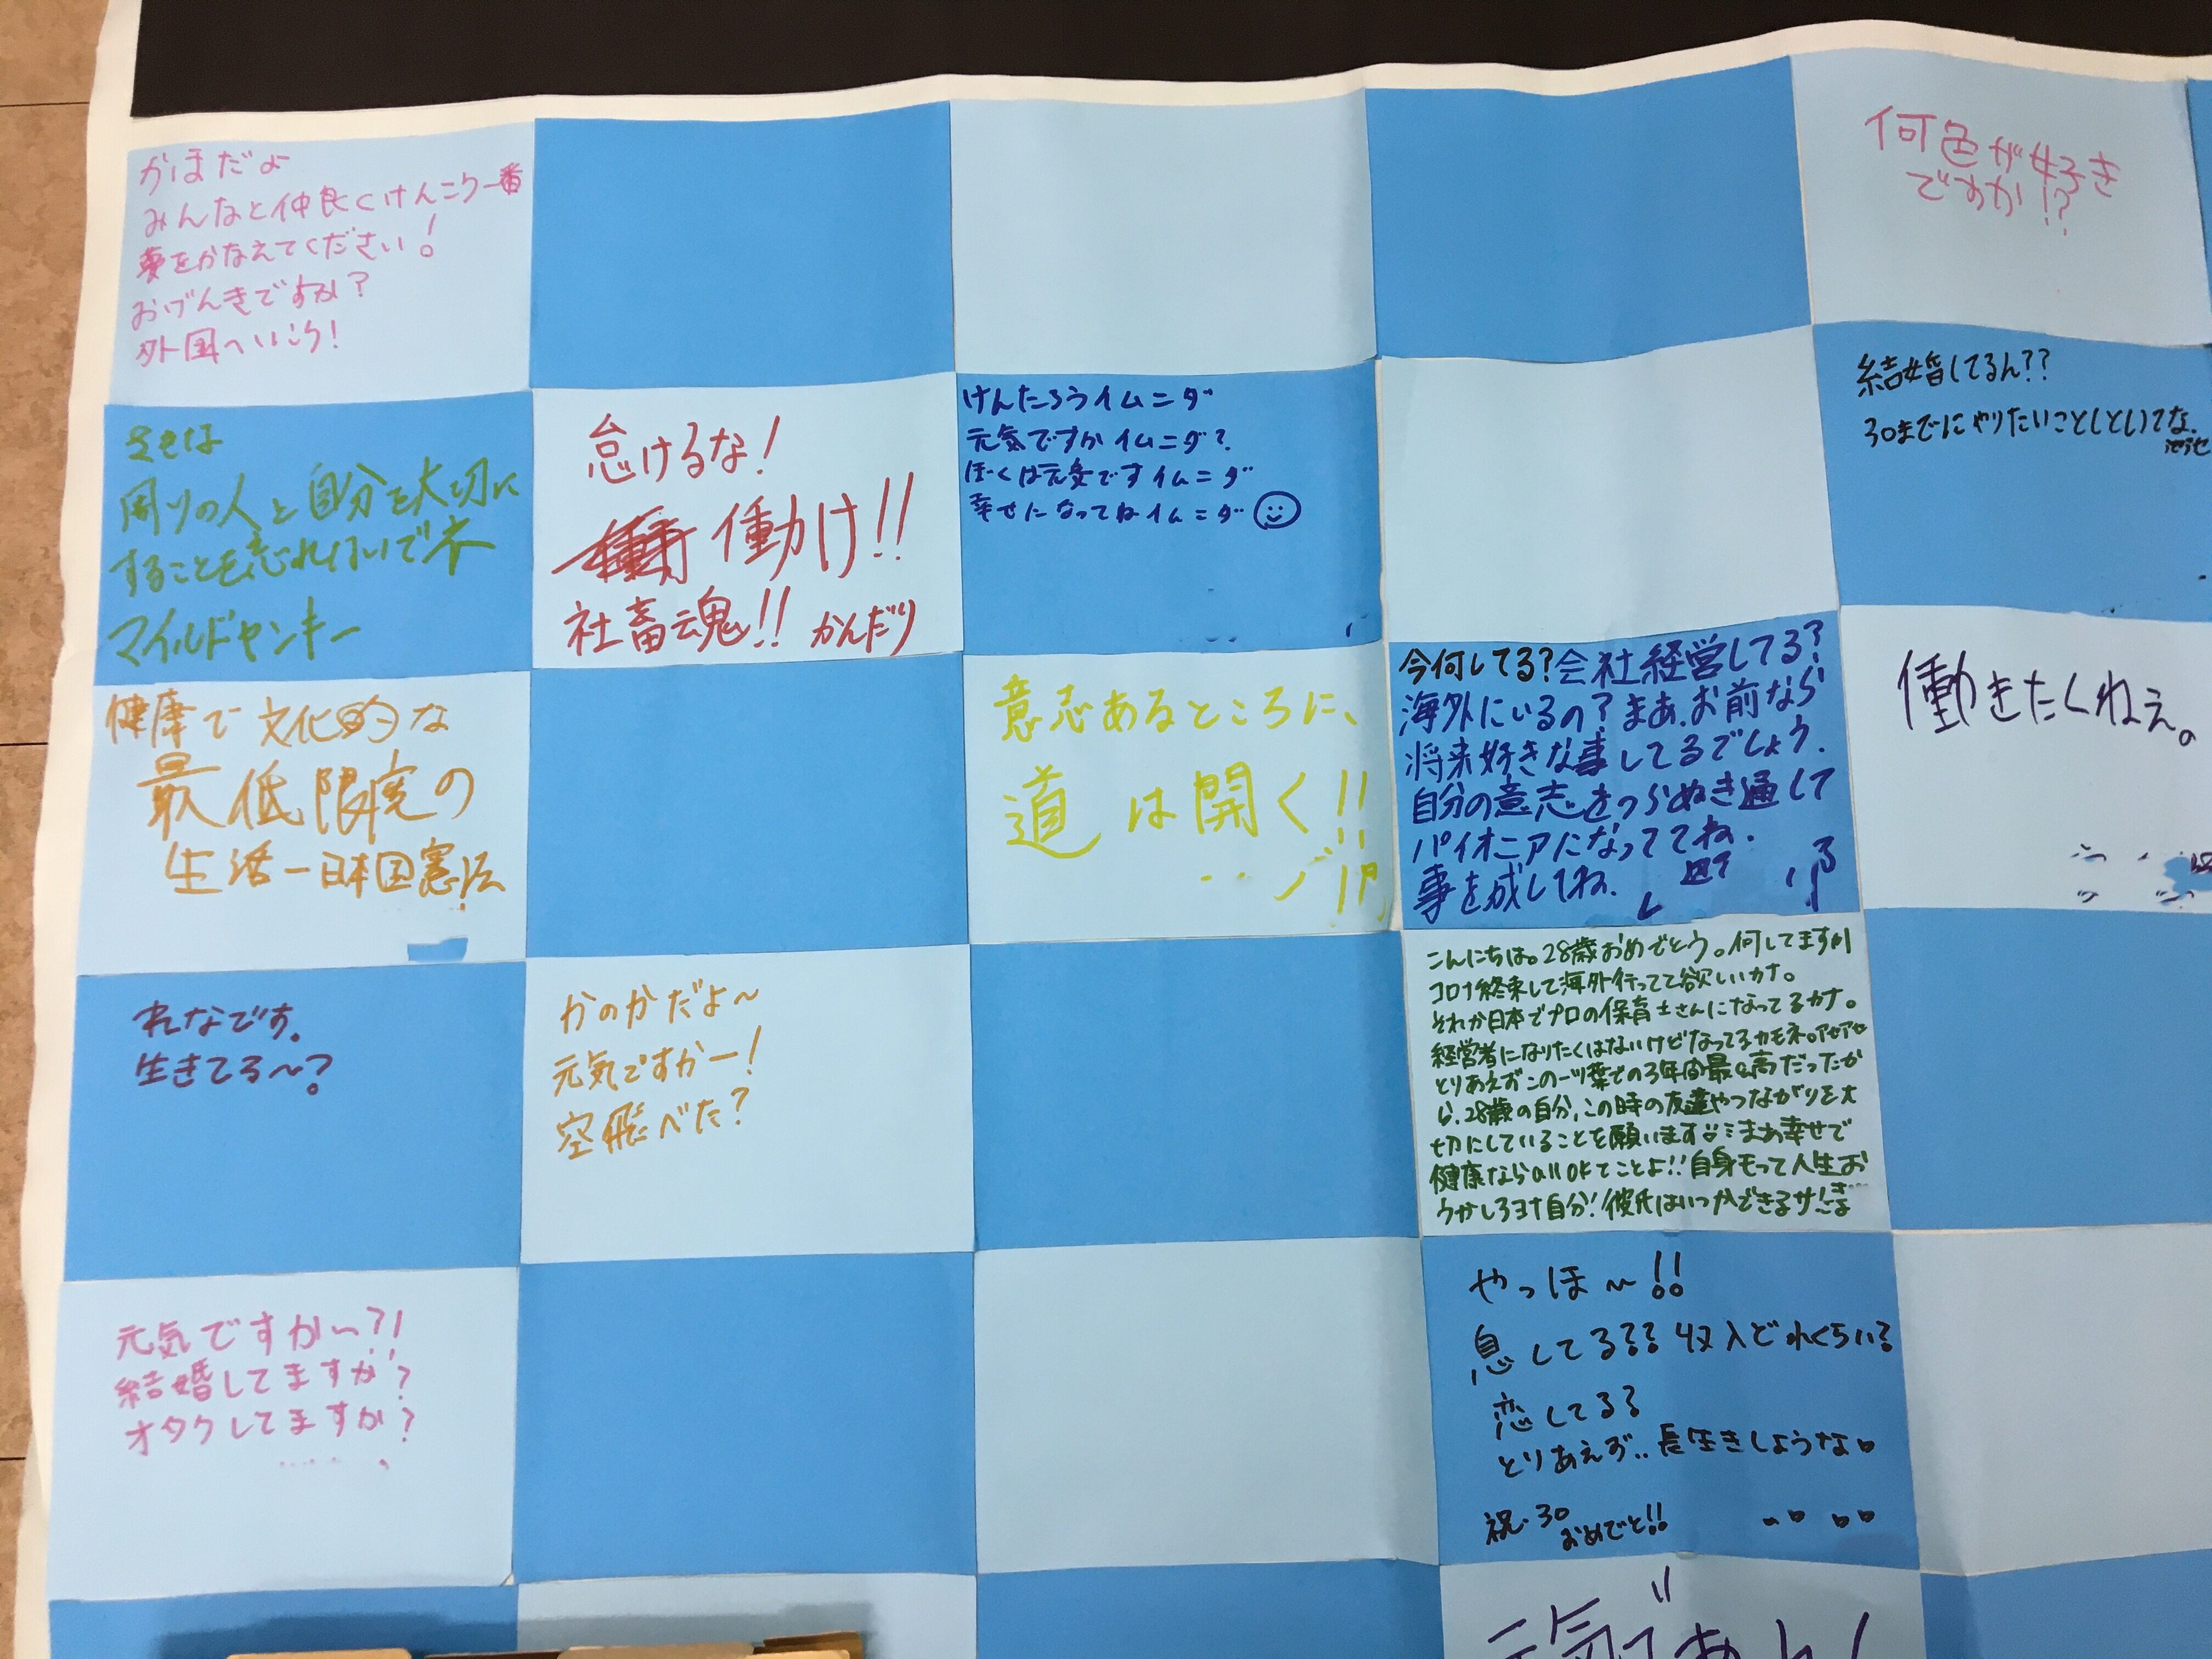 かほだよ
みんなと仲良くけんこう一番
夢をかなえてください!
おげんきですか?
外国へいこう!
何色が好き
ですか!?
周りの人と自分を大切に
することを忘れないでネ
マイルドヤンキー
怠けるな!
働け!!
社畜魂!! かんだり
けんたろうイムニダ
元気ですかイムニダ?
ぼくは元気ですイムニダ
幸せになってねイムニダ
結婚してるん??
30までにやりたいことしといてな.
健康で文化的な
最低限度の
生活ー日本国憲法
意志あるところに、
道は開く!!
今何してる?会社経営してる?
海外にいるの?まあ、お前なら
将来好きな事してるでしょう.
自分の意志をつらぬき通して
パイオニアになっててね.
事を成してね.
働きたくねぇ。
れなです.
生きてる〜?
かのかだよ〜
元気ですかー!
空飛べた?
こんにちは。28歳おめでとう。何してますか
コロナ終束して海外行ってて欲しいカナ。
それか日本でプロの保育士さんになってるカナ。
経営者になりたくはないけどなってるカモネ。アセアセ
とりあえずこの一ツ葉での3年間最&高だったか
ら、28歳の自分、この時の友達やつながりを大
切にしていることを願います まあ幸せで
健康ならall OKてことよ!!自身もって人生お
うかしろヨナ自分!彼氏はいつかできるサ!
元気ですか〜?!
結婚してますか?
オタクしてますか?
やっほ〜!!
息してる??収入どれくらい?
恋してる?
とりあえず..長生きしような。
祝・30
おめでと!!